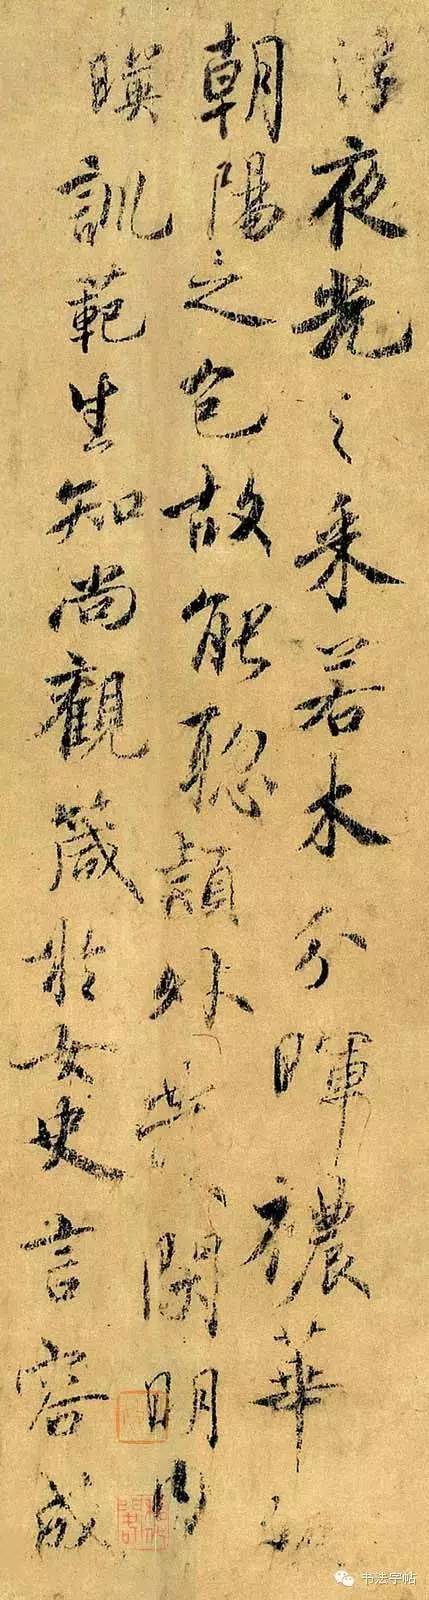 浮夜光之采若木分暉穠華
朝陽之色故能聰穎外發閑明內
暎訓範生知尚觀箴於女史言容成
书法字帖